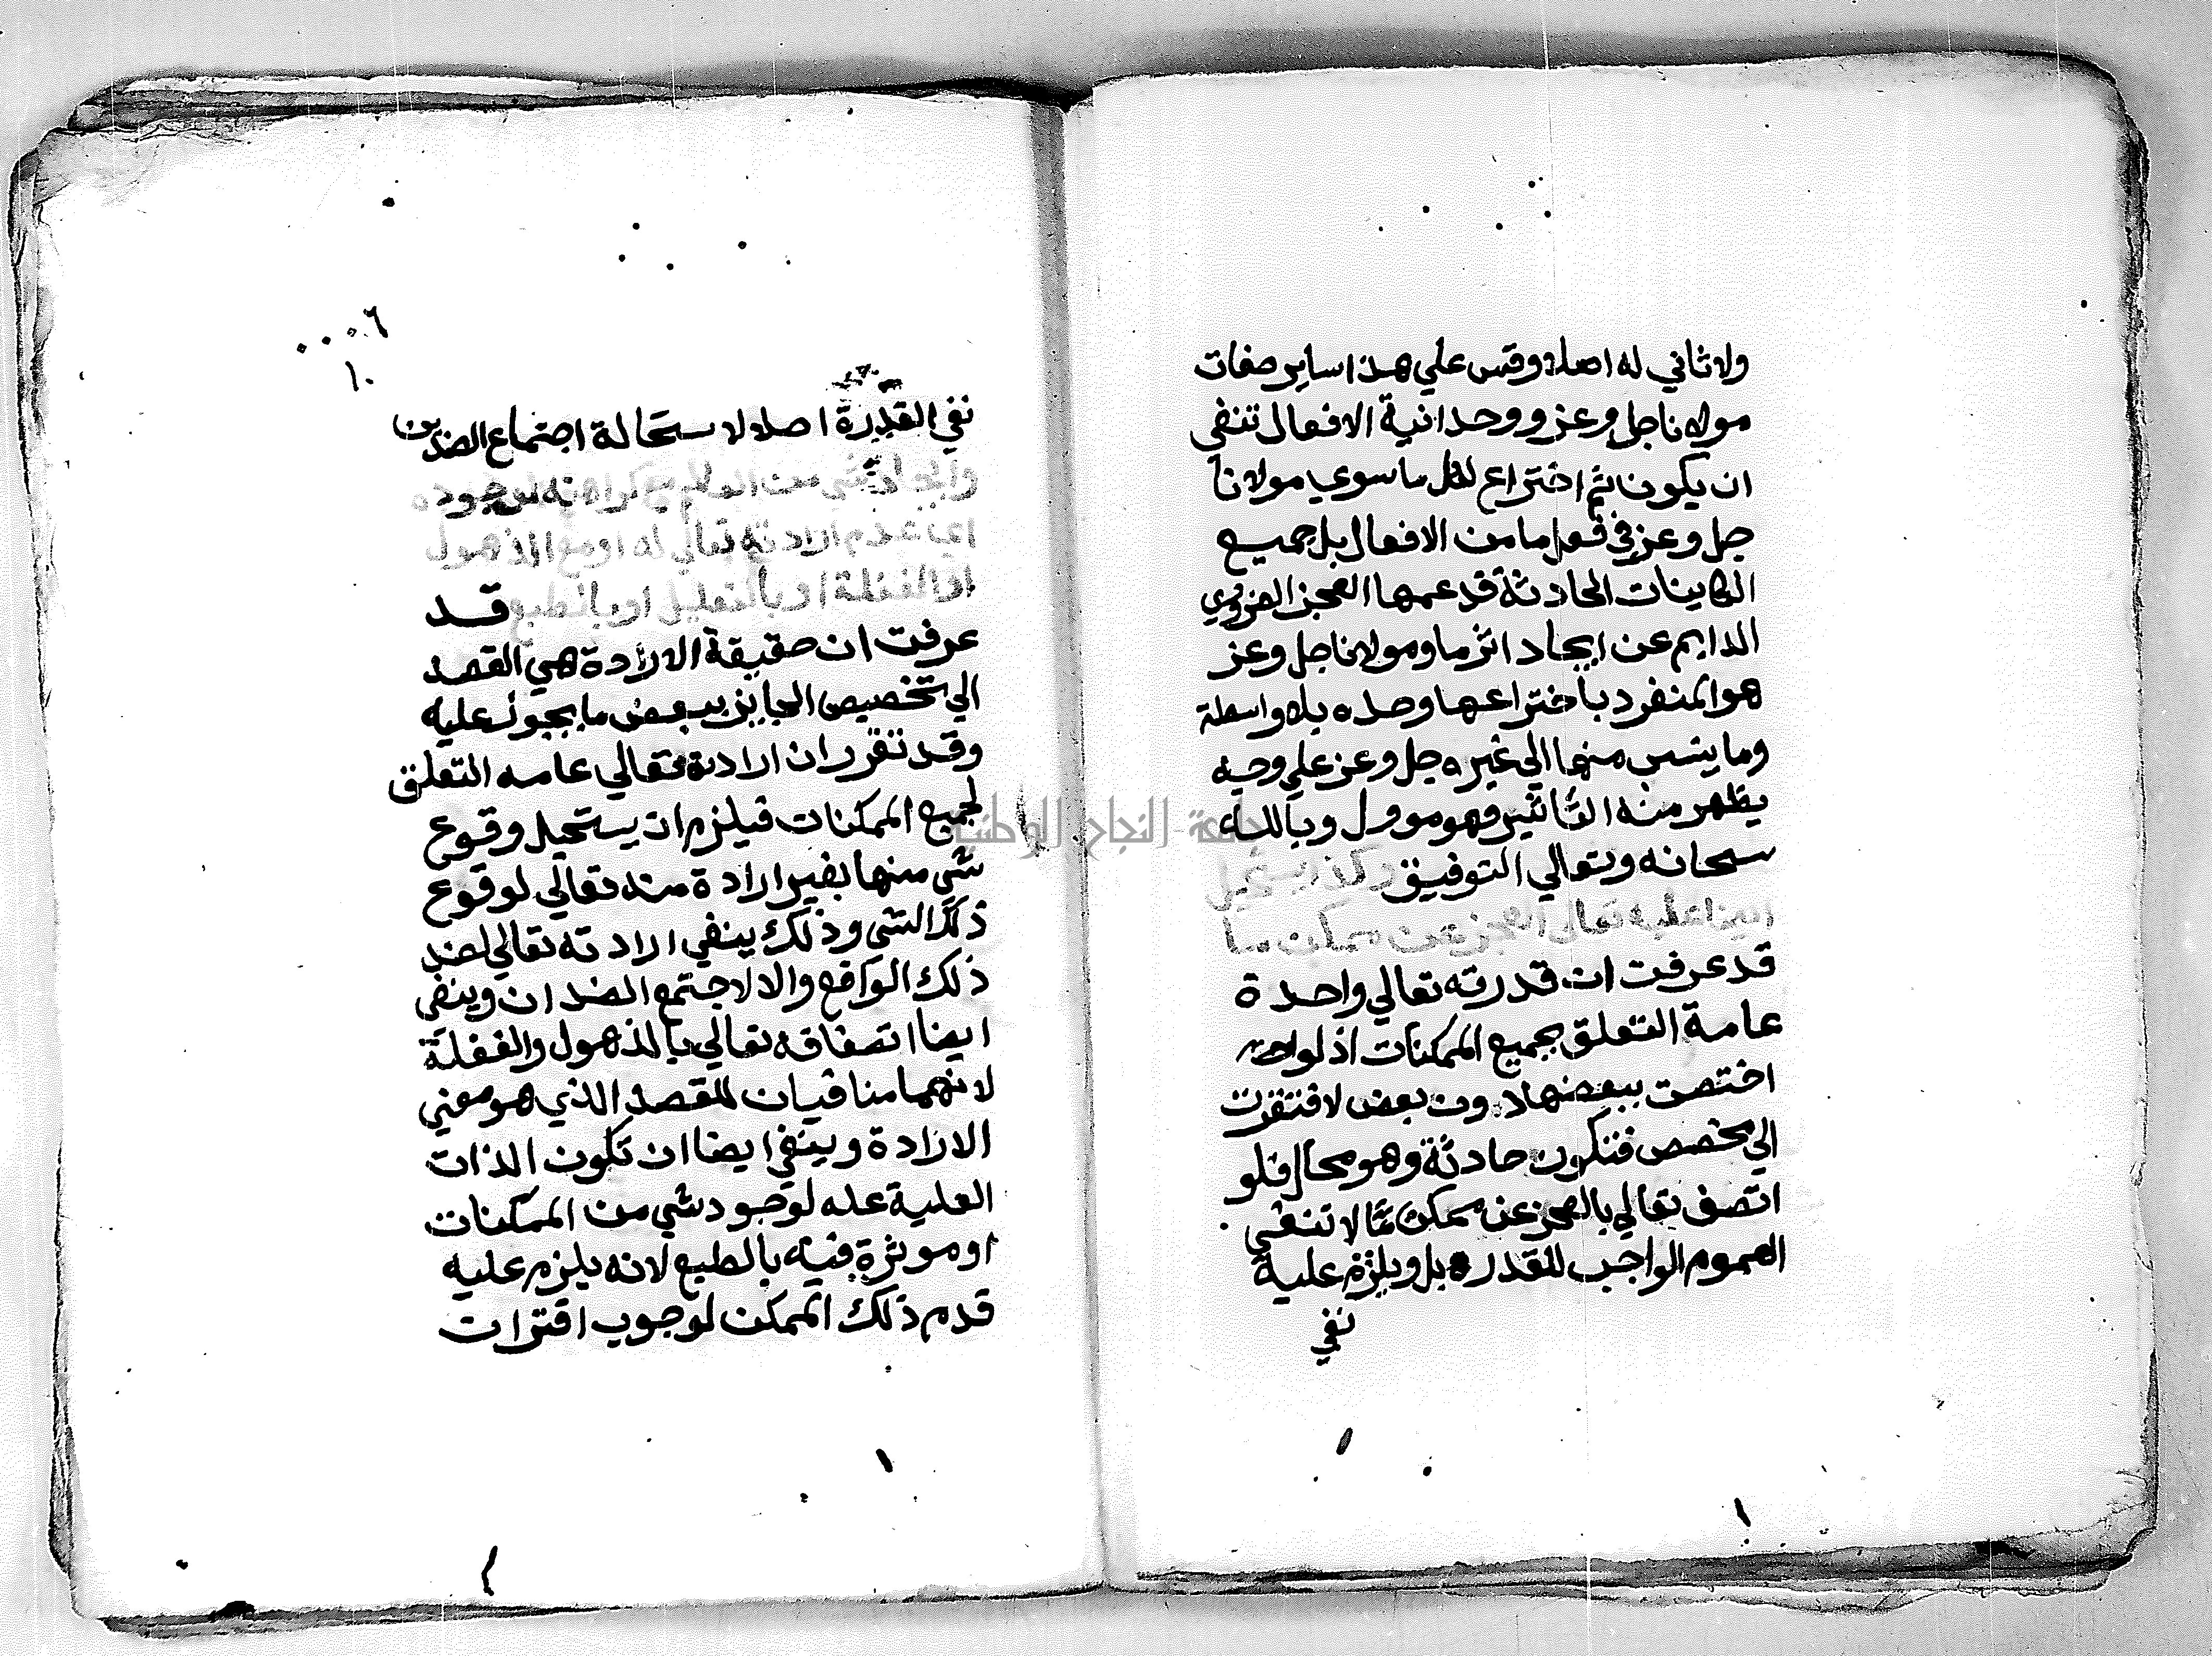 ولا ثاني له اصلا وقس علي هذا ساير صفات
مولانا جل وعز ووحدانية الافعال تنفي
ان يكون ثم اختراع لكل ما سوي مولانا
جل وعز في فعل ما من الافعال بل جميع
الكاينات الحادثة قد عمها العجز الضروري
الدايم عن ايجاد اثر ما ومولانا جل وعز
هو المنفرد باختراعها وحده بلا واسطة
وما ينسب منها الي غيره جل وعز علي وجه
يظهر منه التاثير فهو موول وبالله
سبحانه وتعالي التوفيق وكذا يستحيل
ايضا عليه تعالي العجز عن ممكن ما
قد عرفت ان قدرته تعالي واحدة
عامة التعلق بجميع الممكنات اذ لو
اختصت ببعضها دون بعض لافتقرت
الي مخصص فتكون حادثة وهو محال فلو
اتصف تعالي بالعجز عن ممكن ما لانتفي
العموم الواجب للقدرة بل ويلزم عليه
نفي
جامعة النجاح الوطنية
٠٠٠٦
١٠
نفي القدرة اصلا لاستحالة اجتماع الضدين
وايجاد شي من العالم مع كراهته لوجوده
اي عدم ارادته تعالي له او مع الذهول
او الغفلة او بالتعليل او بالطبع قد
عرفت ان حقيقة الارادة هي القصد
الي تخصيص الجايز ببعض ما يجوز عليه
وقد تقرر ان ارادة تعالي عامه التعلق
لجميع الممكنات فيلزم ان يستحيل وقوع
شي منها بغير ارادة منه تعالي لوقوع
ذلك الشي وذلك ينفي ارادته تعالي لضد
ذلك الواقع والا لاجتمع الضدان وينفي
ايضا اتصفاقه تعالي بالذهول والغفلة
لانهما منافيان للقصد الذي هو معني
الارادة وينفي ايضا ان تكون الذات
العلية عله لوجود شي من الممكنات
او موثرة فيه بالطبع لانه يلزم عليه
قدم ذلك الممكن لوجوب اقتران